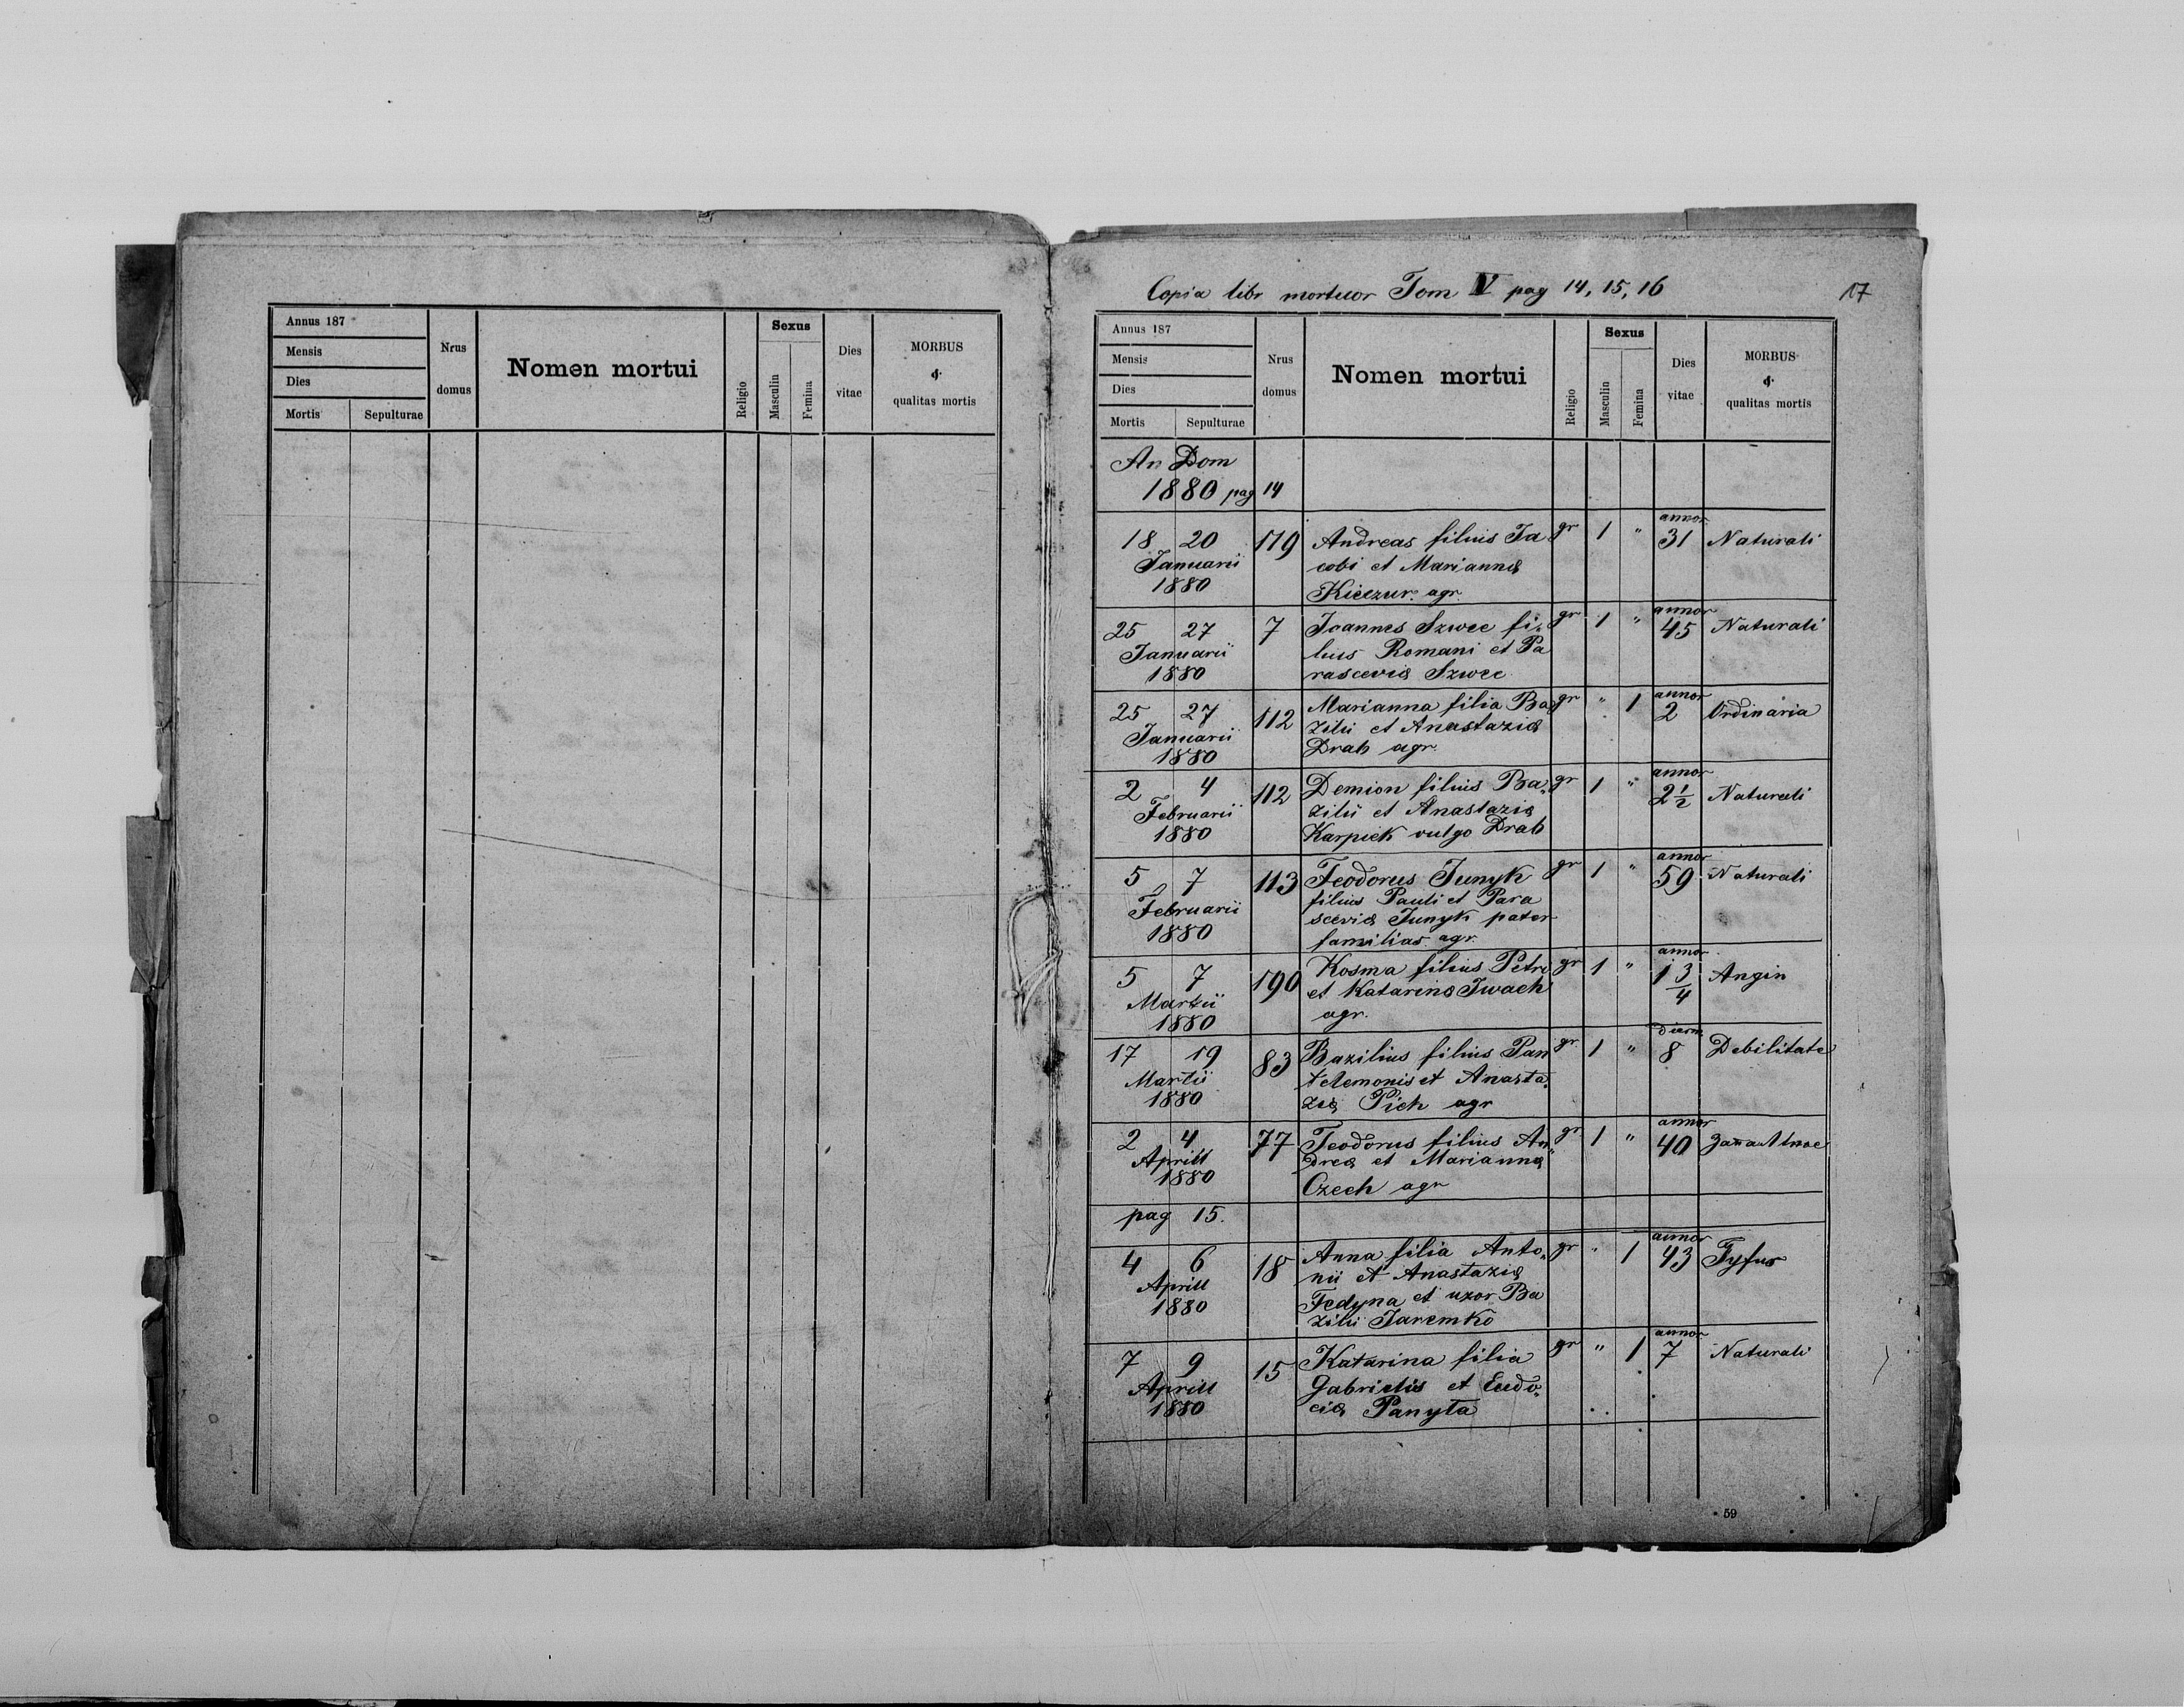 Annus 187
Mensis
Dies
Mortis Sepulturae
Nrus domus
Nomen mortui
Religio
Sexus
Masculin Femina
Dies vitae
MORBUS & qualitas mortis
Copia libr mortuor Tom IV pag 14, 15, 16
17
Annus 187
Mensis
Dies
Mortis Sepulturae
Nrus domus
Nomen mortui
Religio
Sexus
Masculin Femina
Dies vitae
MORBUS & qualitas mortis
An Dom
1880 pag 14
annor
18 20 119 Andreas filius Ja gr 1 " 31 Naturali
Januarii cobi et Mariannæ
1880 Kieczur. agr.
annor
25 27 7 Joannes Szwec fi- gr 1 " 45 Naturali
Januarii lius Romani et Pa
1880 rasceviæ Szwec
annor
25 27 112 Marianna filia Ba gr " 1 2 Ordinaria
Januarii zilii et Anastaziæ
1880 Drab agr.
annor
2 4 112 Demion filius Ba„ gr 1 " 2 1/2 Naturali
Februarii zilii et Anastaziæ
1880 Karpiek vulgo Drab
annor
5 7 113 Teodorus Junyk gr 1 " 59 Naturali
Februarii filius Pauli et Para
1880 sceviæ Junyk pater
familias. agr.
annor
5 7 190 Kosma filius Petri gr 1 " 1 3/4 Angin
Martii et Katarinæ Iwach
1880 agr.
dierm
17 19 83 Bazilius filius Pan gr 1 " 8 Debilitate
Martii telemonis et Anasta„
1880 ziæ Pich agr
annor
2 4 77 Teodorus filius An„ gr 1 " 40
Aprill dreæ et Mariannæ
1880 Czech agr
pag 15.
annor
4 6 18 Anna filia Anto„ gr " 1 43 Tyfus
Aprill nii et Anastaziæ
1880 Fedyna et uxor Ba
zilii Jaremko
annor
7 9 15 Katarina filia gr " 1 7 Naturali
Aprill Gabrielis et Eudo„
1880 ciæ Panyta
59